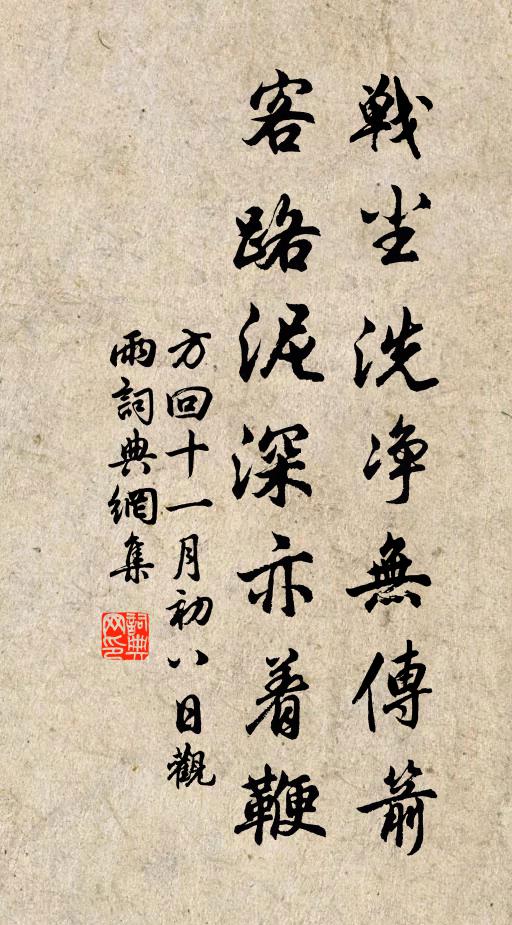 戦尘洗净無傳箭
客路泥深亦着鞭
方回十一月初八日觀
雨詞典網集
詞典
网印